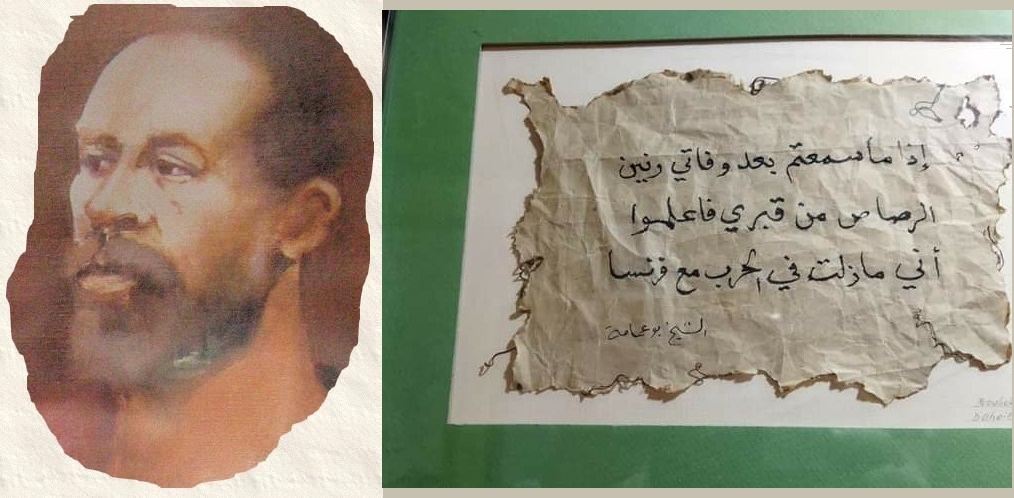 إذا ما سمعتم بعد وفاتي رنين
الرصاص من قبري فاعلموا
أني مازلت في الحرب مع فرنسا
الشيخ بوعمامة